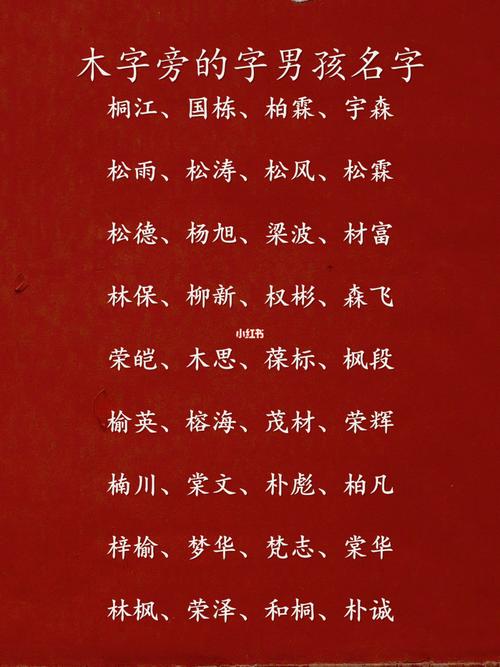 木字旁的字男孩名字
桐江、国栋、柏霖、宇森
松雨、松涛、松风、松霖
松德、杨旭、梁波、材富
林保、柳新、权彬、森飞
小红书
荣皑、木思、葆标、枫段
榆英、榕海、茂材、荣辉
楠川、棠文、朴彪、柏凡
梓榆、梦华、梵志、棠华
林枫、荣泽、和桐、朴诚